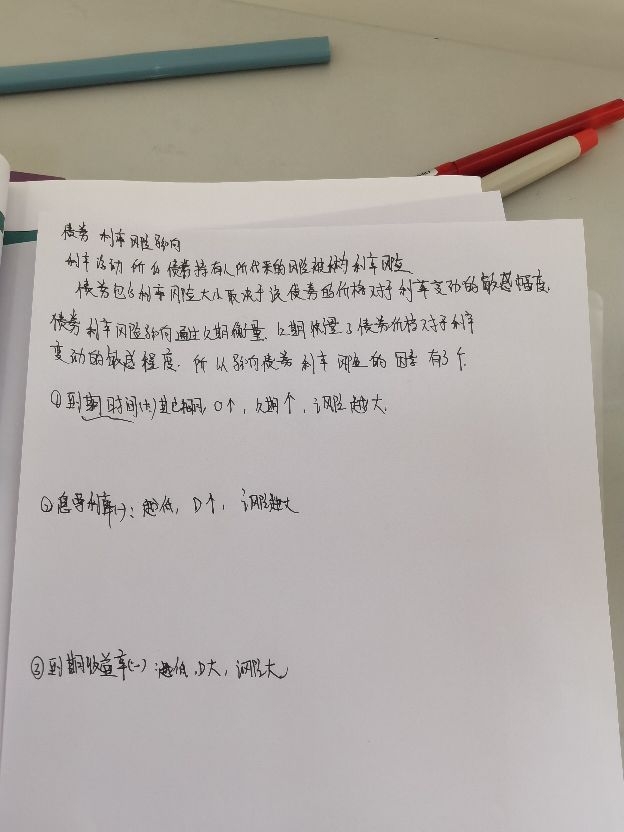 债券利率风险影响
利率波动所给债券持有人所代来的风险被称为利率风险
债券包含利率风险大小取决于该债券的价格对于利率变动的敏感幅度.
债券利率风险影响通过久期衡量.久期衡量了债券价格对于利率
变动的敏感程度.所以影响债券利率风险的因素有3个.
①到期时间(+)其它相同, D↑,久期↑,iR风险越大.
②息票利率(-):越低, D↑, i风险越大
③到期收益率(-):越低, D大, i风险大